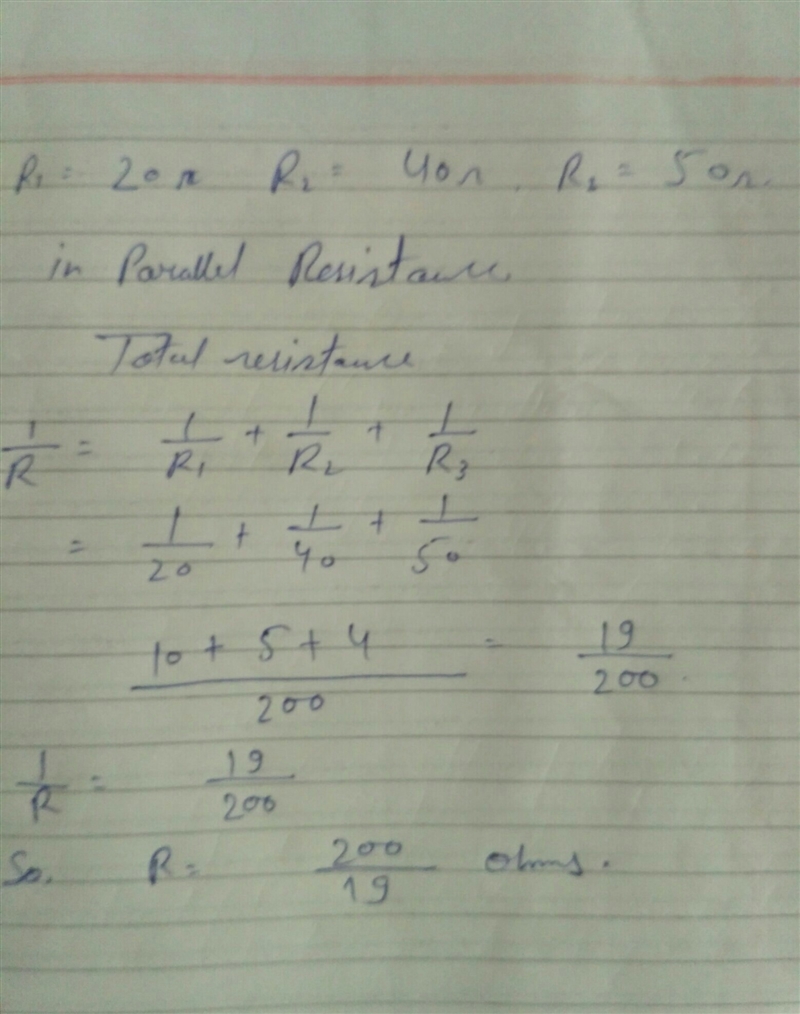 R1 = 20Ω R2 = 40Ω. R2 = 50Ω.
in Parallel Resistance.
Total resistance
1/R = 1/R1 + 1/R2 + 1/R3
= 1/20 + 1/40 + 1/50
10 + 5 + 4 / 200 = 19/200.
1/R = 19/200
So. R = 200/19 ohms.